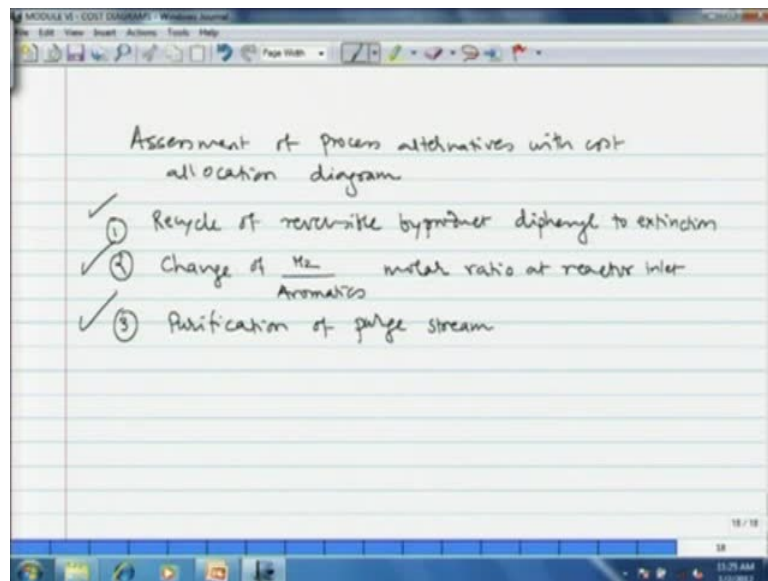 MODULE VI - COST DIAGRAMS - Windows Journal
File Edit View Insert Actions Tools Help
Page Width
Assessment of process alternatives with cost
allocation diagram
1 Recycle of reversible byproduct diphenyl to extinction
2 Change of H2 / Aromatics molar ratio at reactor inlet
3 Purification of purge stream
18 / 18
18
11:25 AM